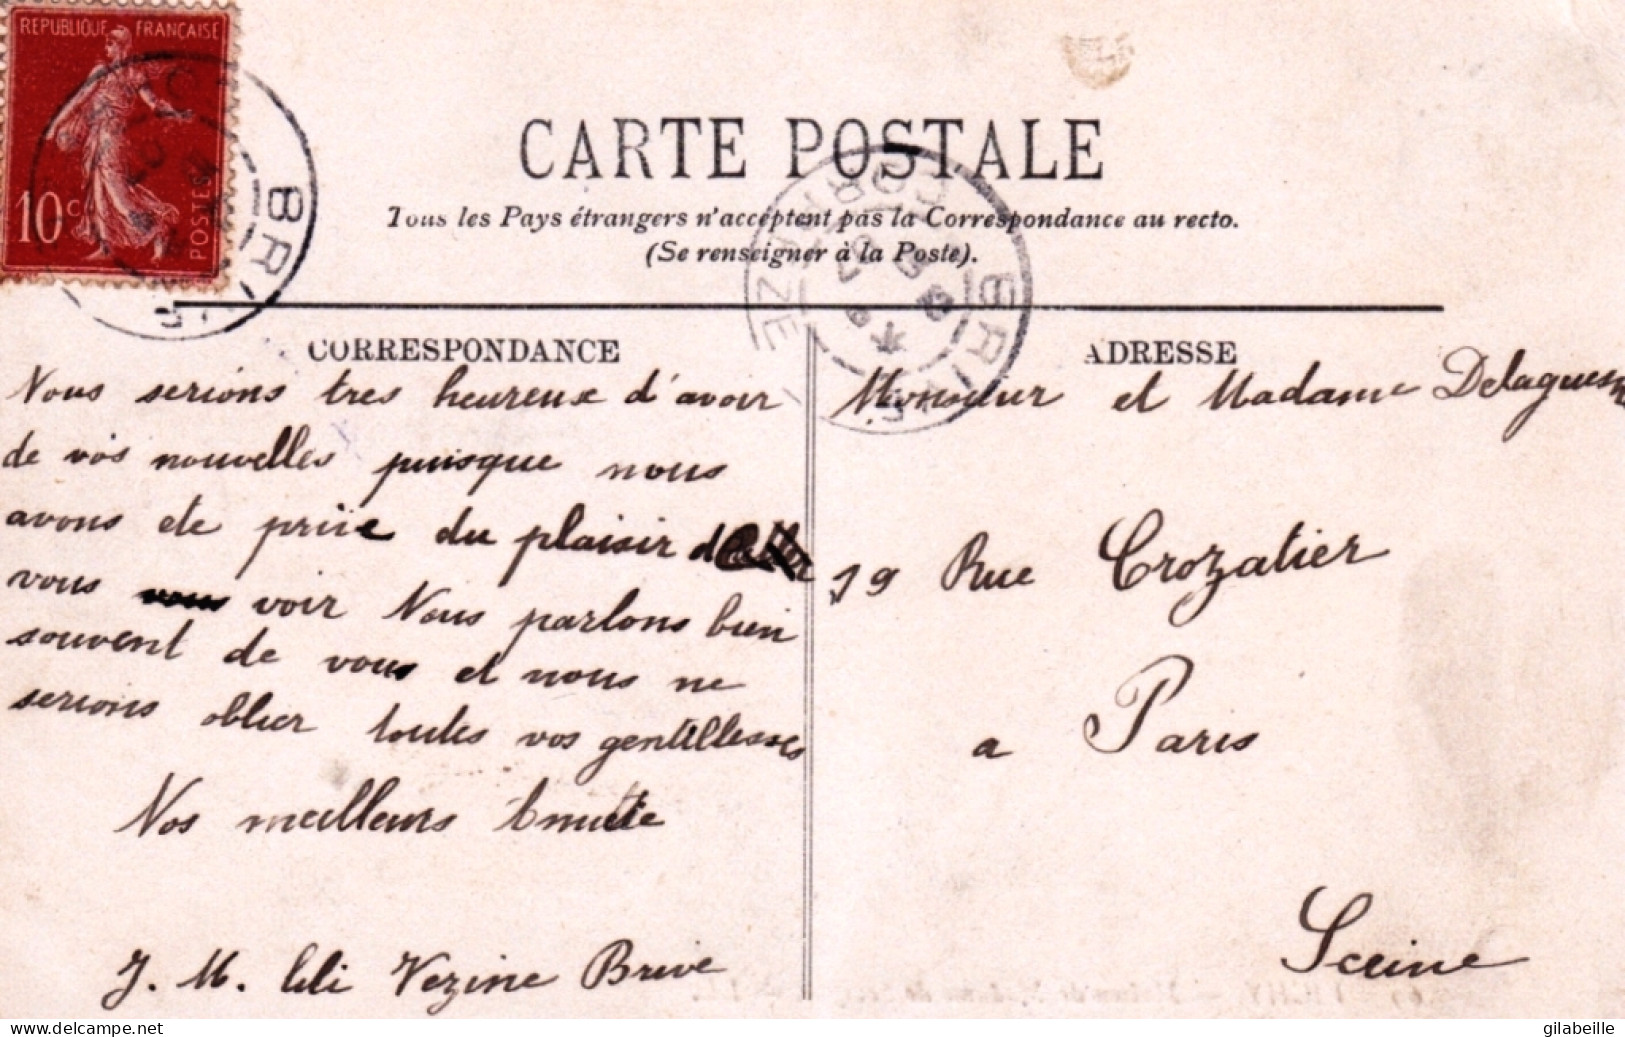 REPUBLIQUE FRANÇAISE
10 c
POSTES
BRIVE
CORREZE
CARTE POSTALE
Tous les Pays étrangers n'acceptent pas la Correspondance au recto.
(Se renseigner à la Poste).
BRIVE
CORREZE
CORRESPONDANCE
Nous serions tres heureuse d'avoir
de vos nouvelles puisque nous
avons ete priie du plaisir de
vous voir Nous parlons bien
souvent de vous et nous ne
serions oblier toutes vos gentillesses
Nos meilleurs
J. M. lili Vezine Brive
ADRESSE
Monsieur et Madame
19 Rue Crozatier
a Paris
Sceine
gilabeille
www.delcampe.net